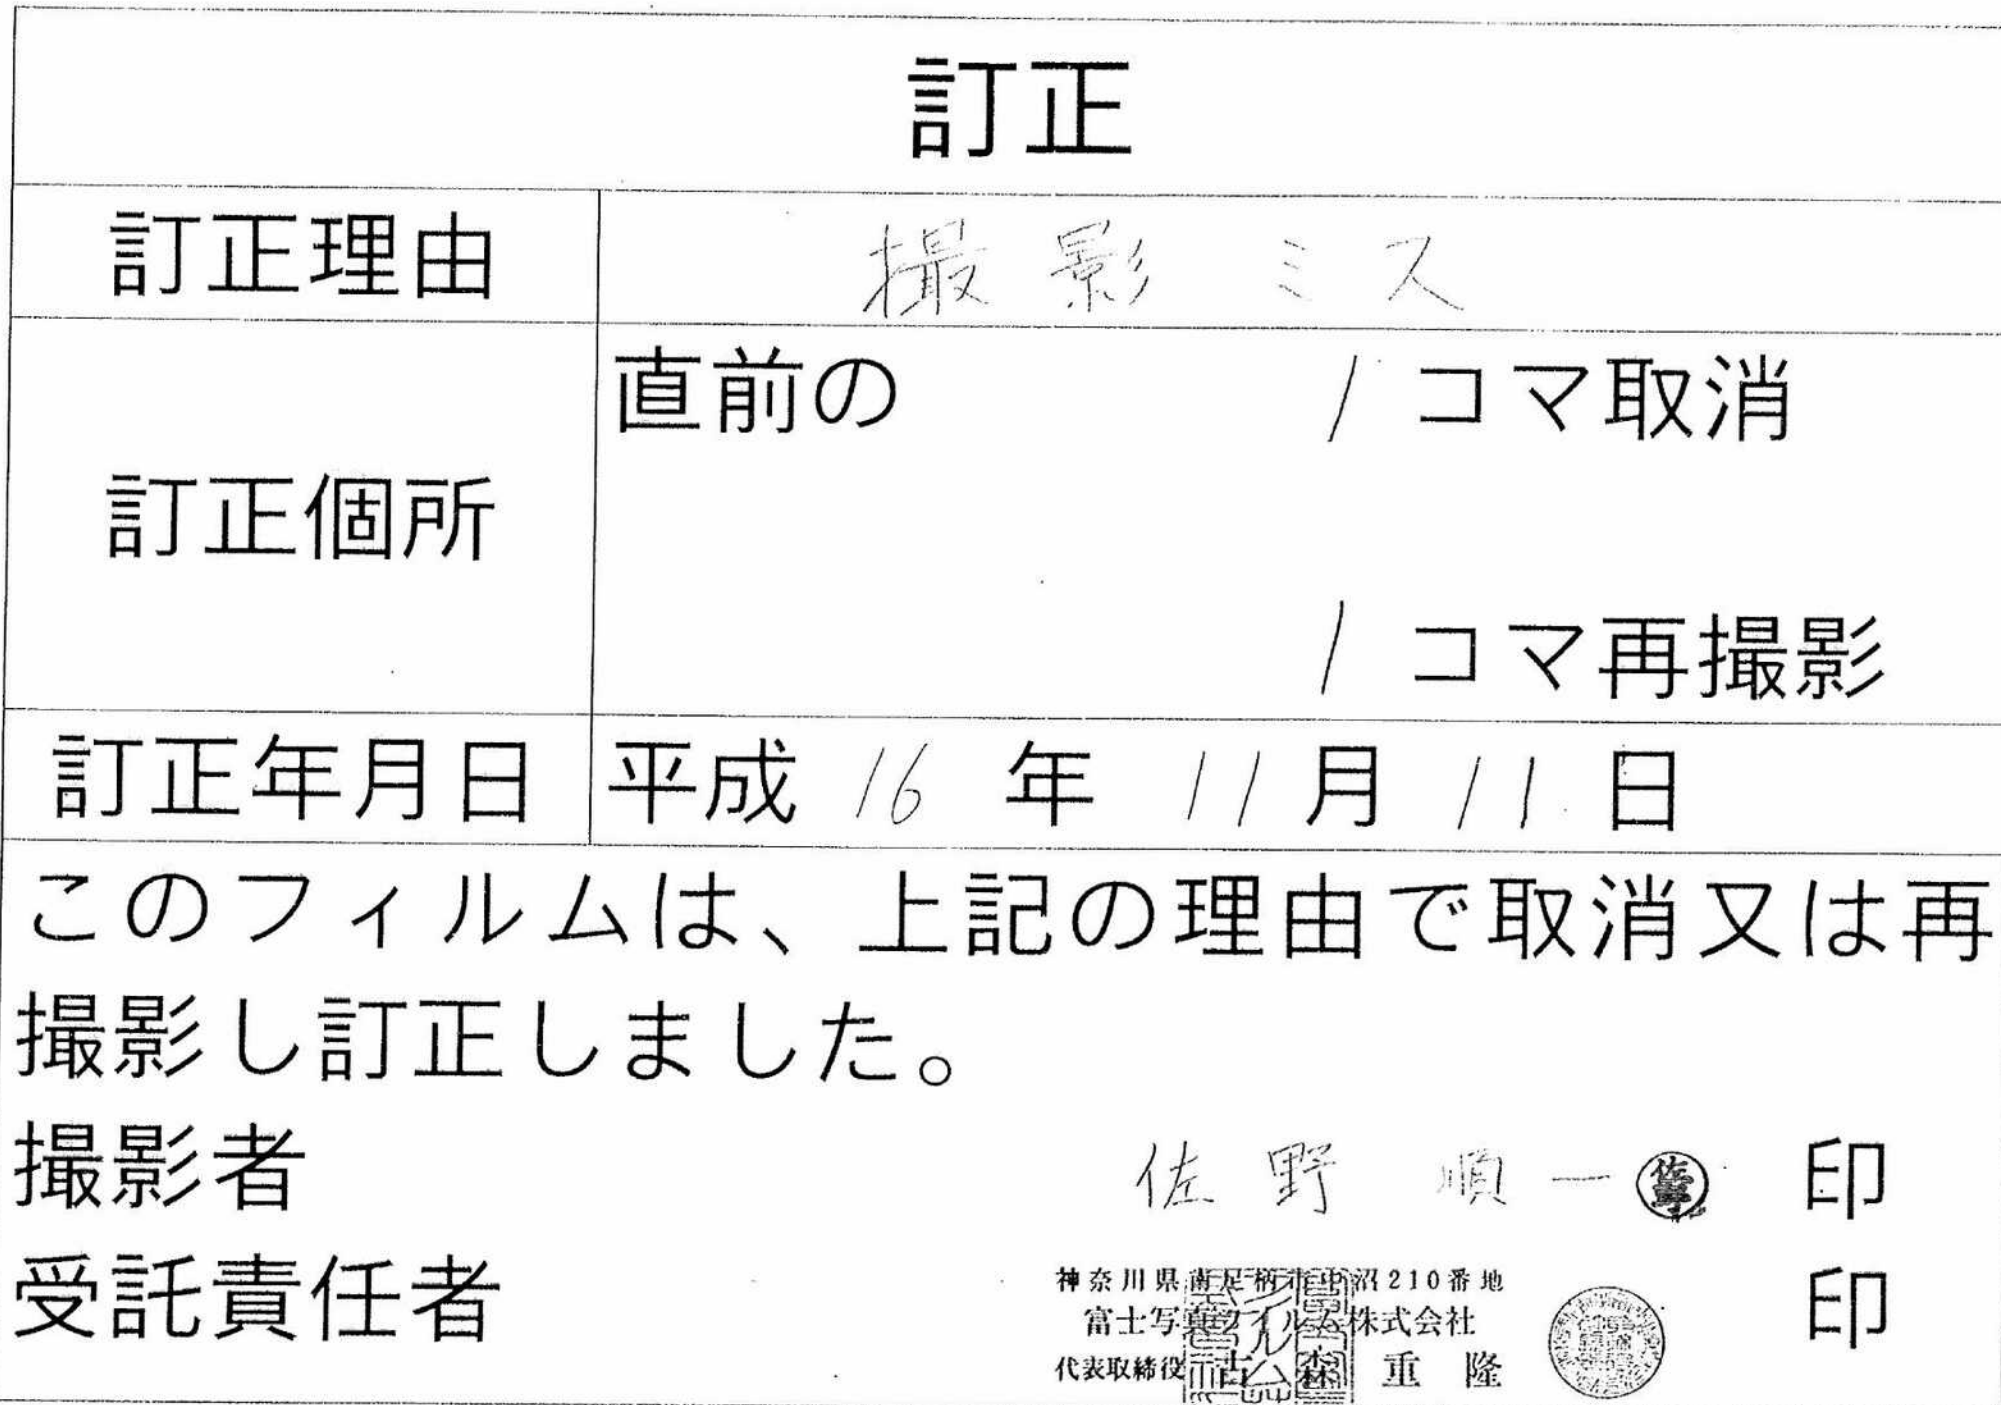 訂正
訂正理由 撮影ミス
直前の 1 コマ取消
訂正個所
1 コマ再撮影
訂正年月日 平成 16 年 11 月 11 日
このフィルムは、上記の理由で取消又は再
撮影し訂正しました。
撮影者 佐野 順一 佐野 印
神奈川県南足柄市中沼210番地
受託責任者 富士写真フイルム株式会社 印
代表取締役 古森 重隆